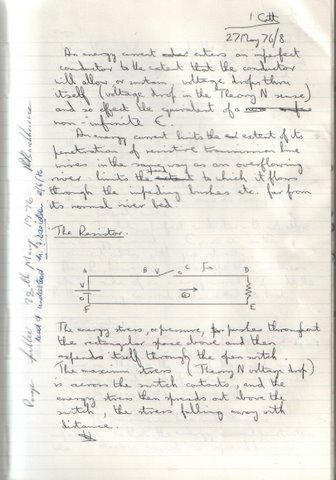 I Catt
27 May 76/8
An energy current enters an imperfect
conductor to the extent that the conductor
will allow, or sustain voltage drop thru
itself (voltage drop in the Theory N sense)
and so effect the equivalent of a
non-infinite ε.
An energy current limits the extent of its
penetration of resistive transmission line
wires in the same way as an overflowing
river limits the to which it flows
through the impeding bushes etc. far from
its normal river bed.
The Resistor.
A B V C D
V
O
F E
The energy stress, or pressure, pushes throughout
the rectangular space above and then
expends itself through the open switch.
The maximum stress (Theory N voltage drop)
is across the switch contacts, and the
energy stress then spreads out above the
switch, the stress falling away with
distance.
28th May 1976
read & understood